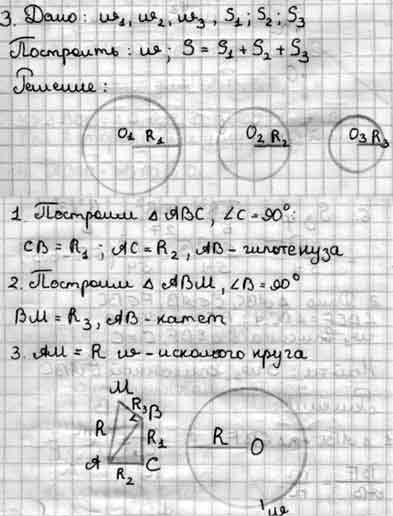 3. Дано: ω₁, ω₂, ω₃, S₁; S₂; S₃
Построить: ω; S = S₁ + S₂ + S₃
Решение:
O₁ R₁ O₂ R₂ O₃ R₃
1. Построим △ ABC, ∠C = 90°:
CB = R₁; AC = R₂, AB - гипотенуза
2. Построим △ ABM, ∠B = 90°
BM = R₃, AB - катет
3. AM = R ω - искомого круга
M
R₃ B
R R₁ R O
A C
R₂
ω